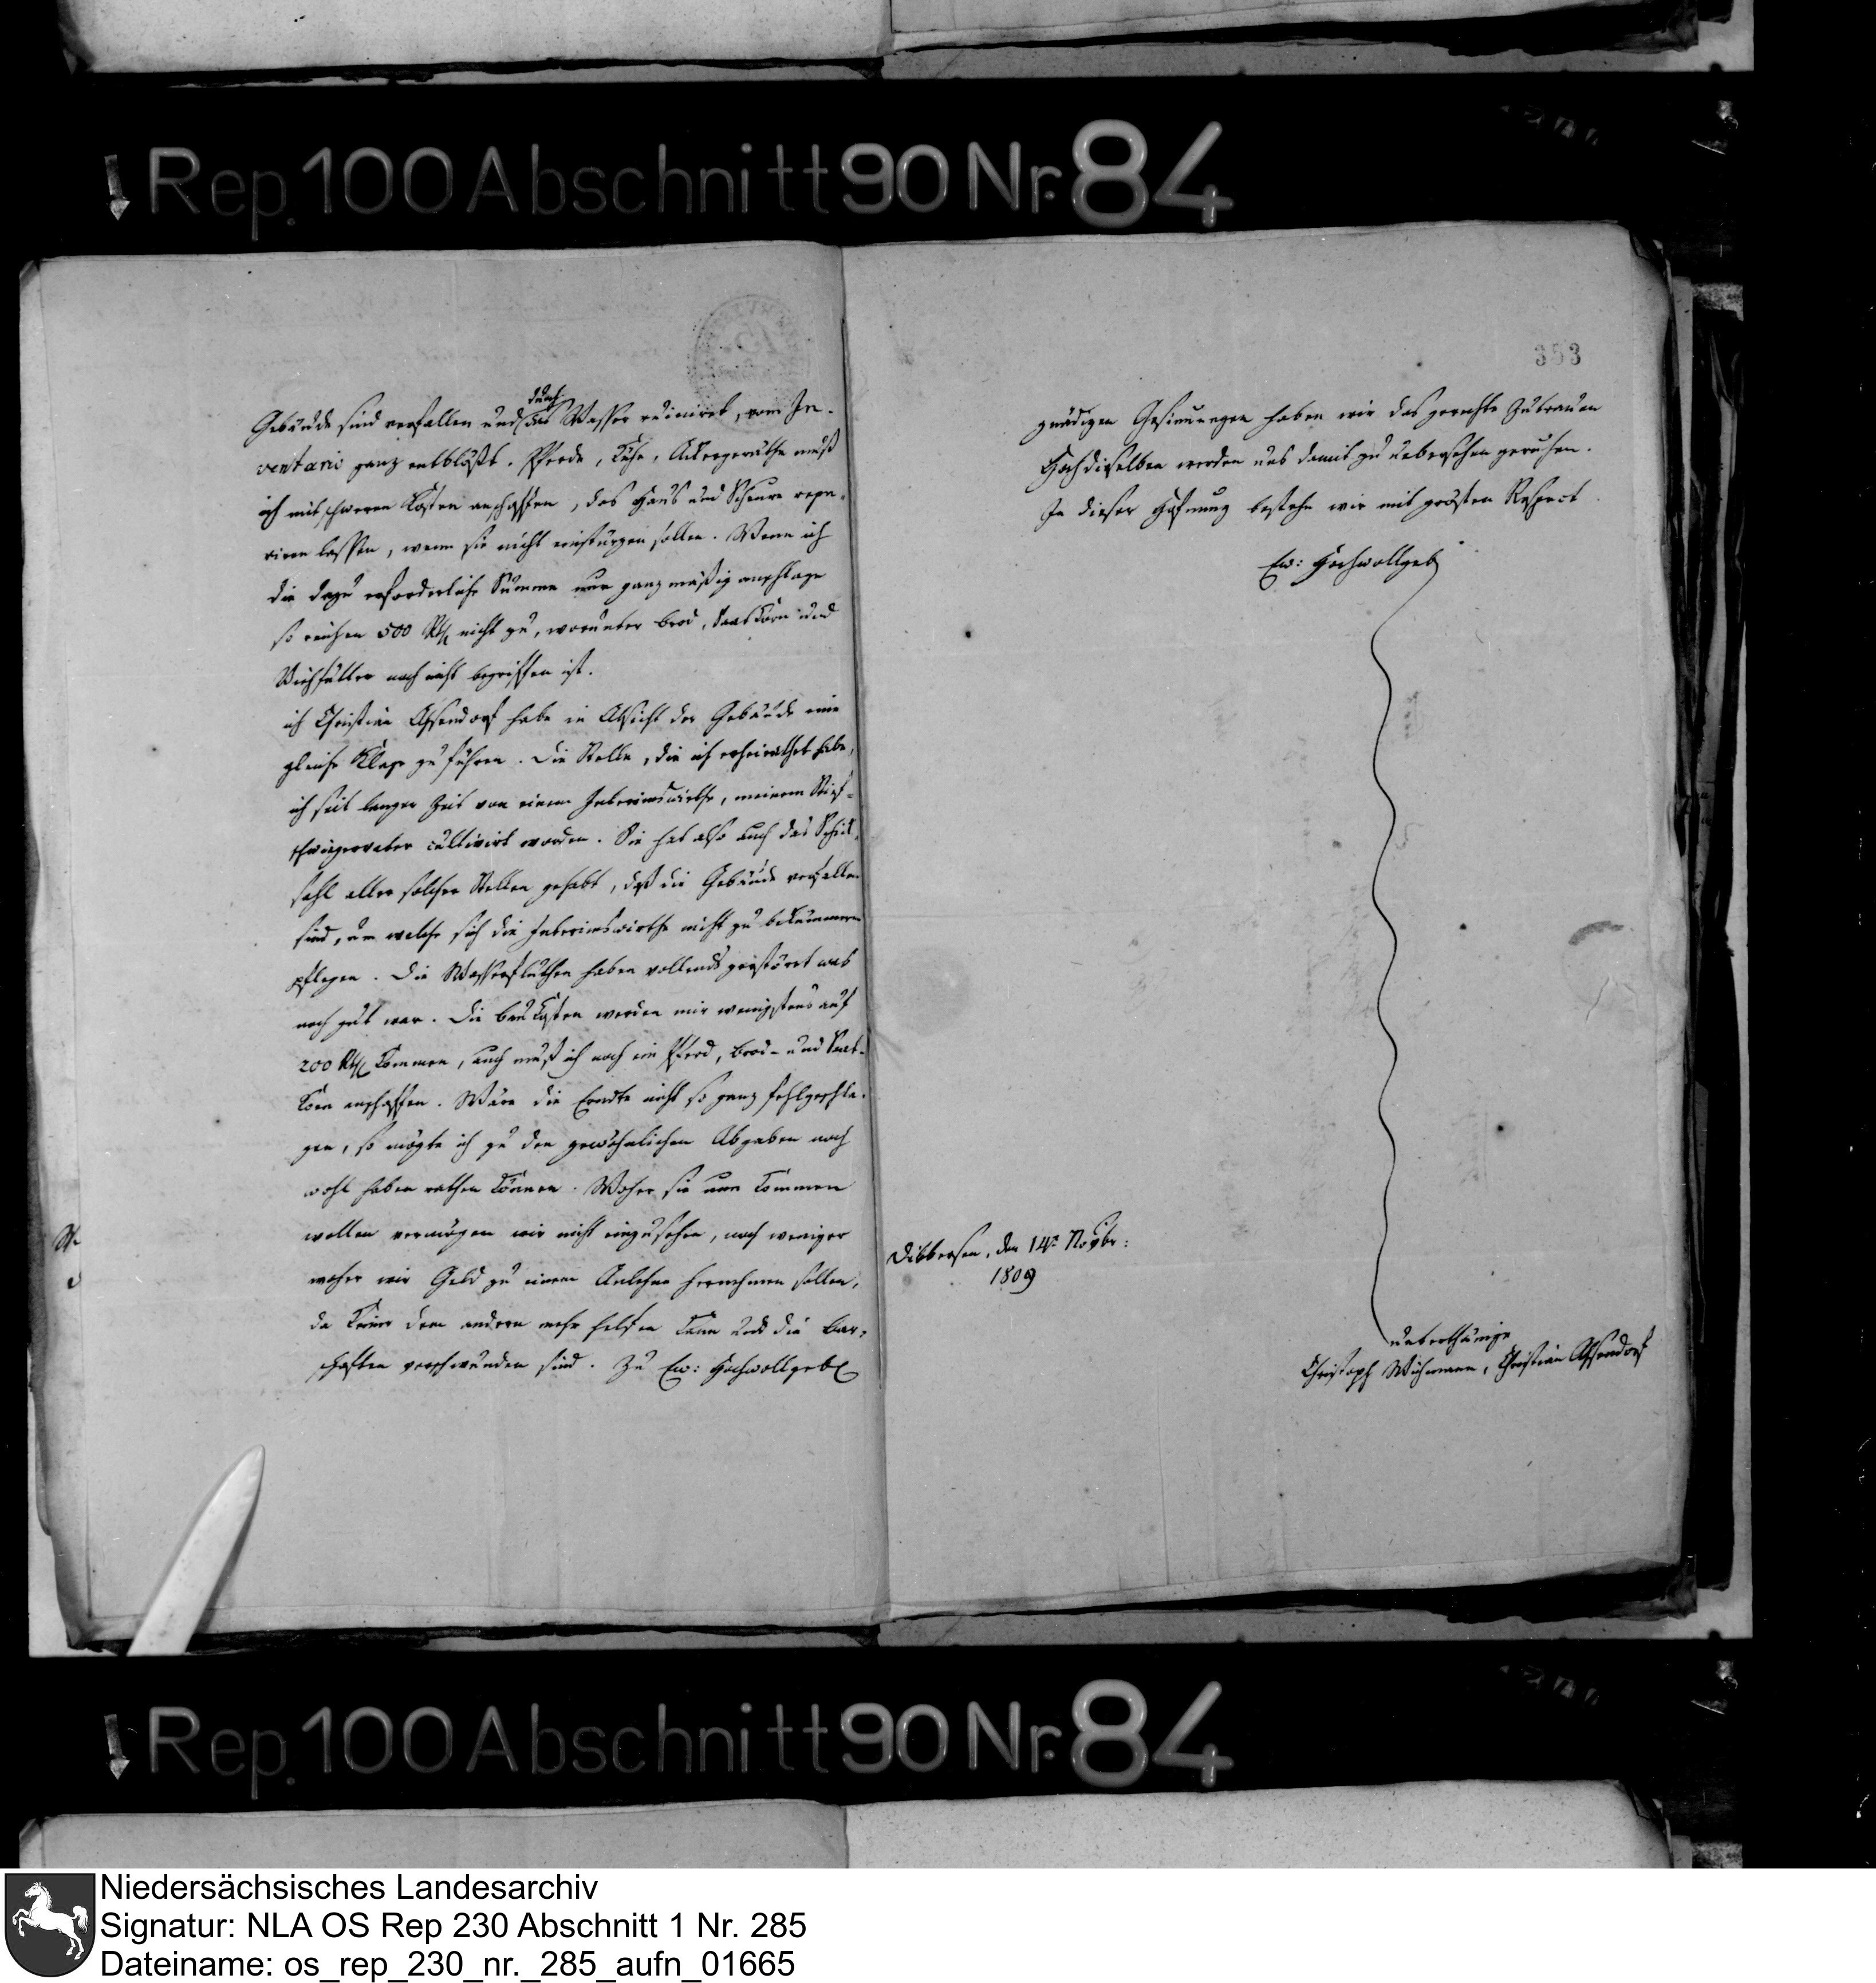 Rep. 100 Abschnitt 90 Nr. 84
Gebäude sind verfallen und durch das Wasser ruinirt, vom In-
ventario ganz entblößt. Pferde, Kühe, Ackergeräthe muß
ich mit schweren Kosten anschaffen, das Haus und Scheure repa-
riren lassen, wenn sie nicht einstürzen sollen. Wenn ich
die dazu erforderliche Summe nur ganz mäßig anschlage
so reichen 500 Rth nicht zu, worunter Brod, Saatkorn und
Viehfutter noch nicht begriffen ist.
ich Christian Assendorf habe in Absicht der Gebäude eine
gleiche Klage zu führen. Die Stelle, die ich erheirathet habe,
ist seit langer Zeit von einem Interimswirthe, meinem Stief-
schwiegervater cultivirt worden. Sie hat also auch das Schick-
sahl aller solcher Stellen gehabt, daß die Gebäude verfallen
sind, um welche sich die Interimswirthe nicht zu bekümmern
pflegen. Die Wasserfluthen haben vollends zerstöret was
noch gut war. Die Baukosten werden mir wenigstens auf
200 Rth kommen, auch muß ich noch ein Pferd, Brod- und Saat-
korn anschaffen. Wäre die Erndte nicht so ganz fehlgeschla-
gen, so mögte ich zu den gewöhnlichen Abgaben noch
wohl haben rathen können. Woher sie nun kommen
wollen vermögen wir nicht einzusehen, noch weniger
woher wir Geld zu einem Anlehne hernehmen sollen,
da keiner dem andern mehr helfen kann und die Bar-
schaften verschwunden sind. Zu Ew: Hochwollgeb
353
gnädigen Gesinnungen haben wir das gerechte Zutrauen
Hochdieselben werden uns damit zu uebersehen geruhen.
In dieser Hofnung bestehn wir mit grösten Respect
Ew: Hochwollgeb
Dibbersen, den 14t Novbr:
1809
unterthänige
Christoph Wichmann, Christian Assendorf
Rep. 100 Abschnitt 90 Nr. 84
Niedersächsisches Landesarchiv
Signatur: NLA OS Rep 230 Abschnitt 1 Nr. 285
Dateiname: os_rep_230_nr._285_aufn_01665